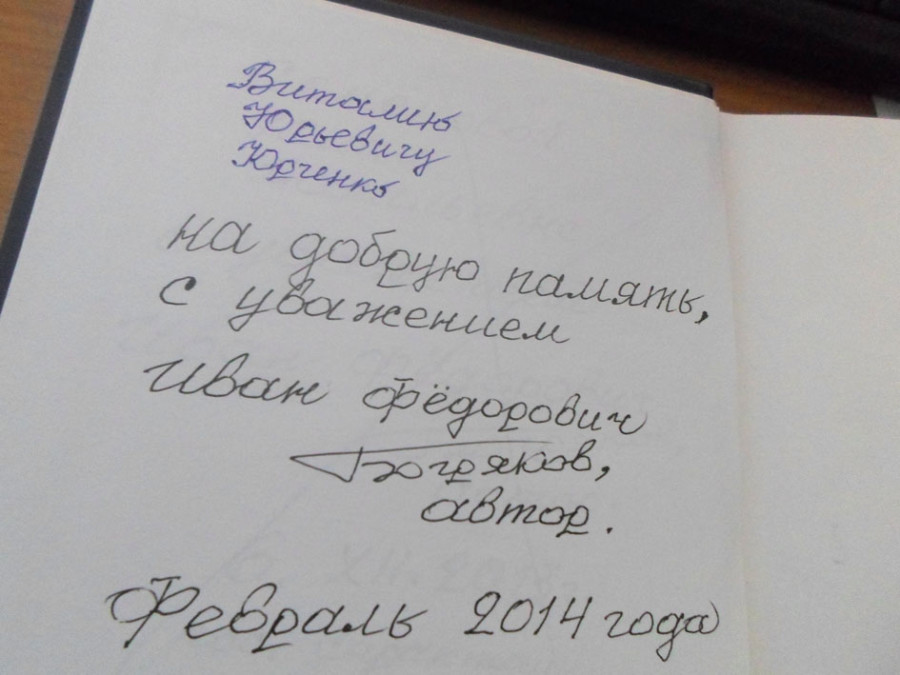 Виталию
Юрьевичу
Юрченко
на добрую память,
с уважением
Иван Фёдорович
автор.
Февраль 2014 года